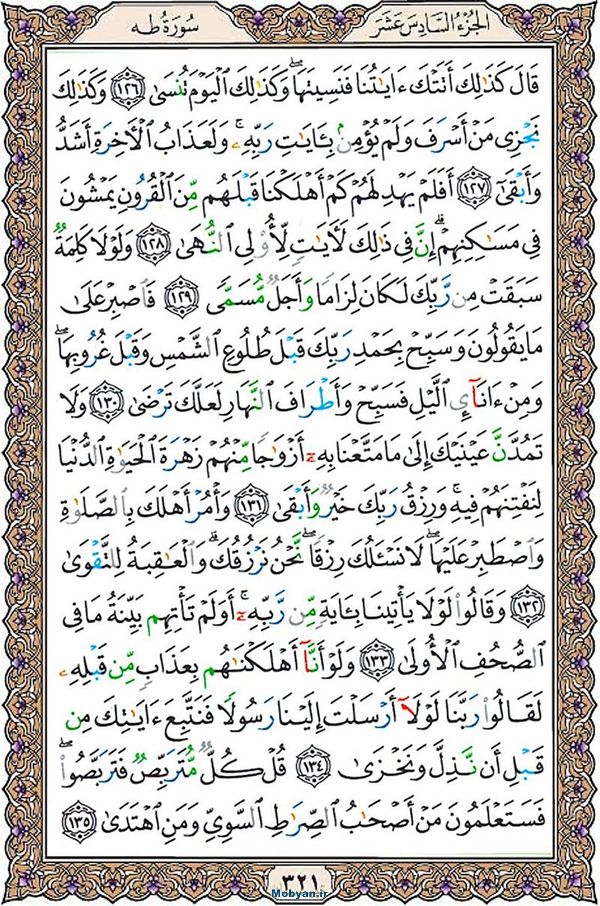 الجزء السادس عشر
سورة طه
قَالَ كَذَٰلِكَ أَتَتْكَ ءَايَٰتُنَا فَنَسِيتَهَا ۖ وَكَذَٰلِكَ الْيَوْمَ تُنسَىٰ ١٢٦ وَكَذَٰلِكَ
نَجْزِى مَنْ أَسْرَفَ وَلَمْ يُؤْمِنۢ بِـَٔايَٰتِ رَبِّهِۦ ۚ وَلَعَذَابُ الْأَخِرَةِ أَشَدُّ
وَأَبْقَىٰٓ ١٢٧ أَفَلَمْ يَهْدِ لَهُمْ كَمْ أَهْلَكْنَا قَبْلَهُم مِّنَ الْقُرُونِ يَمْشُونَ
فِى مَسَٰكِنِهِمْ ۗ إِنَّ فِى ذَٰلِكَ لَأَيَٰتٍ لِّأُو۟لِى النُّهَىٰ ١٢٨ وَلَوْلَا كَلِمَةٌ
سَبَقَتْ مِن رَّبِّكَ لَكَانَ لِزَامًا وَأَجَلٌ مُّسَمًّى ١٢٩ فَاصْبِرْ عَلَىٰ
مَا يَقُولُونَ وَسَبِّحْ بِحَمْدِ رَبِّكَ قَبْلَ طُلُوعِ الشَّمْسِ وَقَبْلَ غُرُوبِهَا ۖ
وَمِنْ ءَانَآئِ الَّيْلِ فَسَبِّحْ وَأَطْرَافَ النَّهَارِ لَعَلَّكَ تَرْضَىٰ ١٣٠ وَلَا
تَمُدَّنَّ عَيْنَيْكَ إِلَىٰ مَا مَتَّعْنَا بِهِۦٓ أَزْوَٰجًا مِّنْهُمْ زَهْرَةَ الْحَيَوٰةِ الدُّنْيَا
لِنَفْتِنَهُمْ فِيهِ ۚ وَرِزْقُ رَبِّكَ خَيْرٌ وَأَبْقَىٰ ١٣١ وَأْمُرْ أَهْلَكَ بِالصَّلَوٰةِ
وَاصْطَبِرْ عَلَيْهَا ۖ لَا نَسْـَٔلُكَ رِزْقًا ۖ نَّحْنُ نَرْزُقُكَ ۗ وَالْعَٰقِبَةُ لِلتَّقْوَىٰ
١٣٢ وَقَالُوا۟ لَوْلَا يَأْتِينَا بِـَٔايَةٍ مِّن رَّبِّهِۦٓ ۚ أَوَلَمْ تَأْتِهِم بَيِّنَةُ مَا فِى
الصُّحُفِ الْأُولَىٰ ١٣٣ وَلَوْ أَنَّآ أَهْلَكْنَٰهُم بِعَذَابٍ مِّن قَبْلِهِۦ
لَقَالُوا۟ رَبَّنَا لَوْلَآ أَرْسَلْتَ إِلَيْنَا رَسُولًا فَنَتَّبِعَ ءَايَٰتِكَ مِن
قَبْلِ أَن نَّذِلَّ وَنَخْزَىٰ ١٣٤ قُلْ كُلٌّ مُّتَرَبِّصٌ فَتَرَبَّصُوا۟ ۖ
فَسَتَعْلَمُونَ مَنْ أَصْحَٰبُ الصِّرَٰطِ السَّوِىِّ وَمَنِ اهْتَدَىٰ ١٣٥
٣٢١
Mobyan.ir